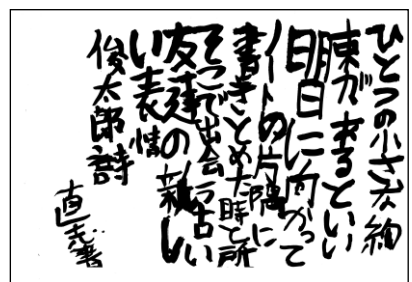 ひとつの小さな約
束があるといい
明日に向かって
ノートの片隅に
書きとめた時と所
そこで出会う古い
友達の親し
い表情
俊太郎詩
直志書